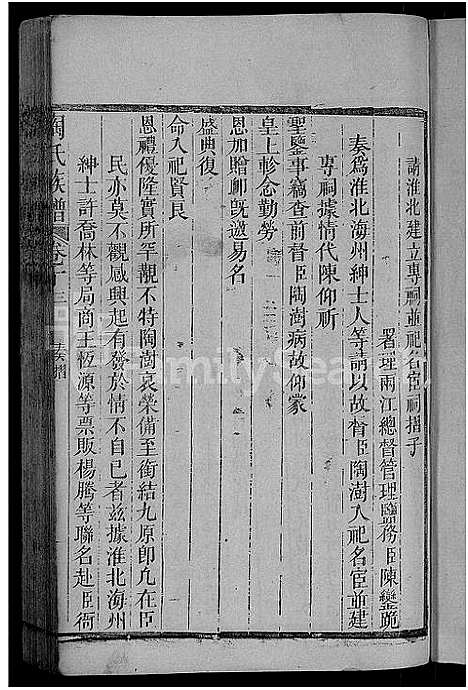 請淮北建立專祠並祀名臣祠摺子
署理兩江總督管理鹽務臣陳鑾跪
奏爲淮北海州紳士人等請以故督臣陶澍入祀名宦並建
專祠據情代陳仰祈
聖鑒事竊查前督臣陶澍病故仰蒙
皇上軫念勤勞
恩加贈卹旣邀易名
盛典復
命入祀賢良
恩禮優隆實所罕覯不特陶澍哀榮備至銜結九原卽凡在臣
民亦莫不觀感興起有發於情不自已者兹據淮北海州
紳士許喬林等局商王恆源等票販楊騰等聯名赴臣衙
陶氏族譜 卷 三 奏摺
FamilySearch